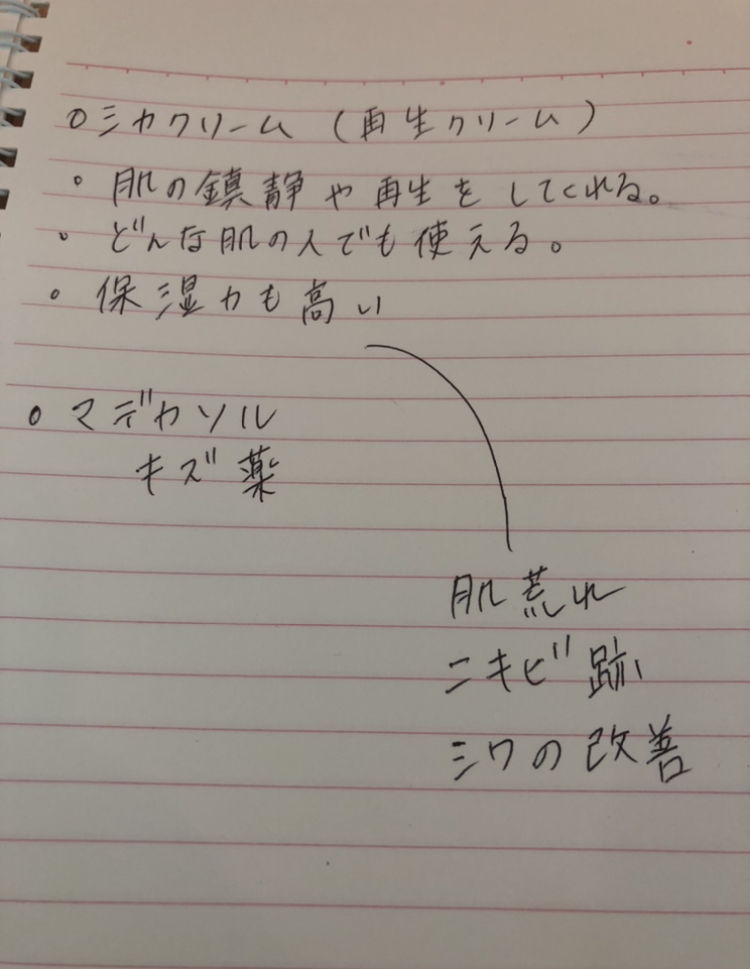 ○シカクリーム（再生クリーム）
・肌の鎮静や再生をしてくれる。
・どんな肌の人でも使える。
・保湿力も高い
○マデカソル
キズ薬
肌荒れ
ニキビ跡
シワの改善